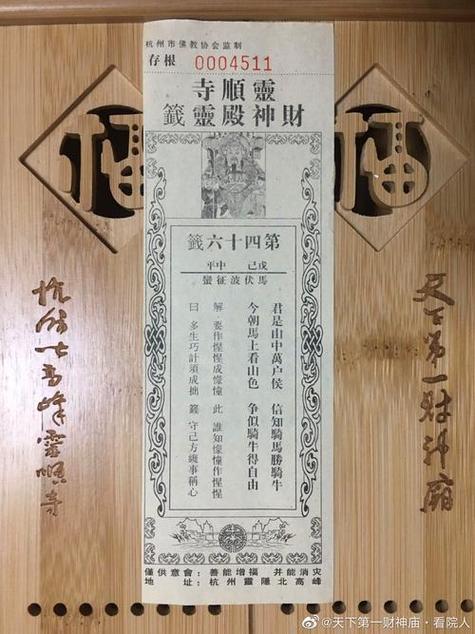 杭州市佛教协会监制
存根 0004511
靈順寺
財神殿靈籤
第四十六籤
戊己 中平
馬伏波征蠻
君是山中萬户侯 信知騎馬勝騎牛
今朝馬上看山色 争似騎牛得自由
解·要作惺惺成懞憧 此 誰知懞憧作惺惺
曰 多生巧計須成拙 籤 守己方纔事稱心
僅供意會：善能增福 并能消灾
地 址：杭州靈隱北高峰
天下第一財神廟
杭州北高峰靈順寺
@天下第一财神庙·看院人